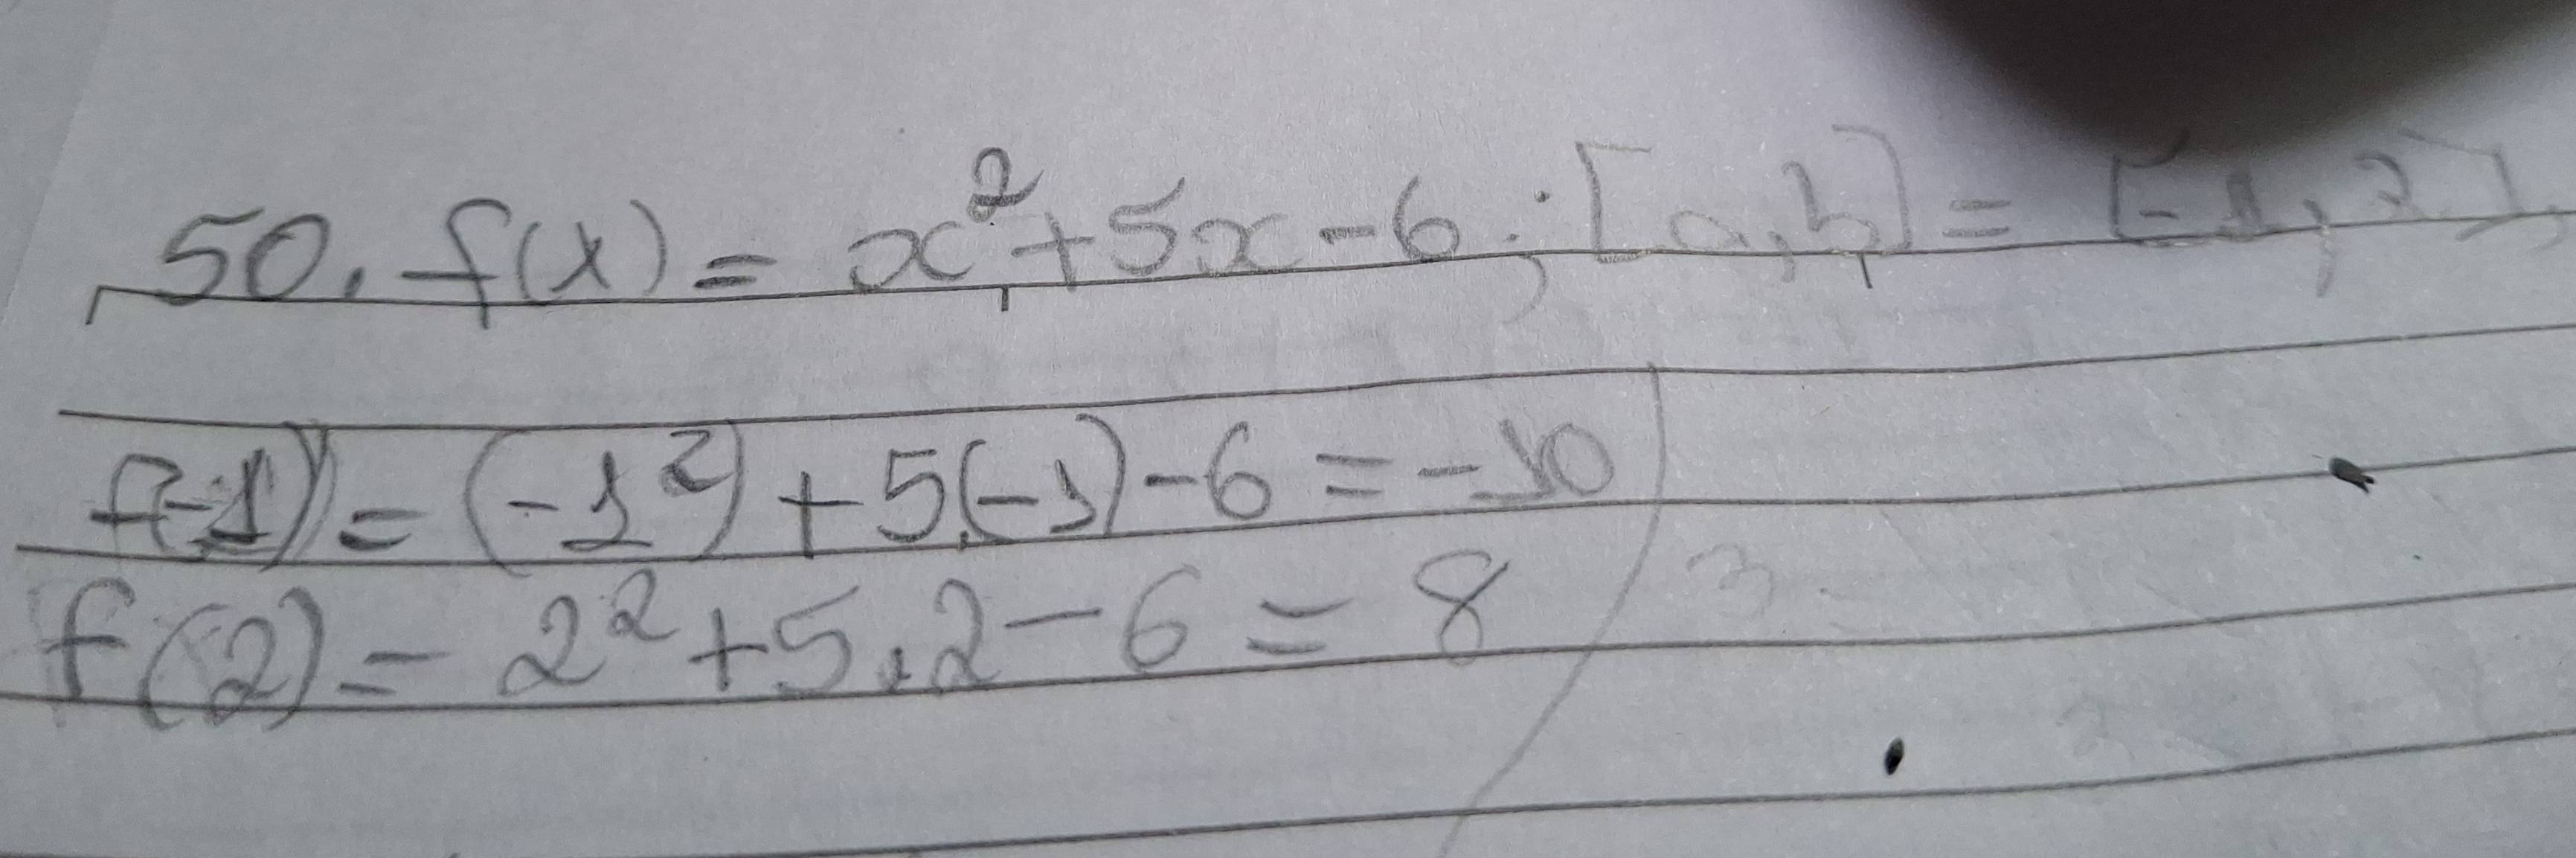 50. f(x) = x²+5x-6; [a,b] = [-1,2]
f(-1) = (-1²) + 5(-1) - 6 = -10
f(2) = 2² + 5.2 - 6 = 8